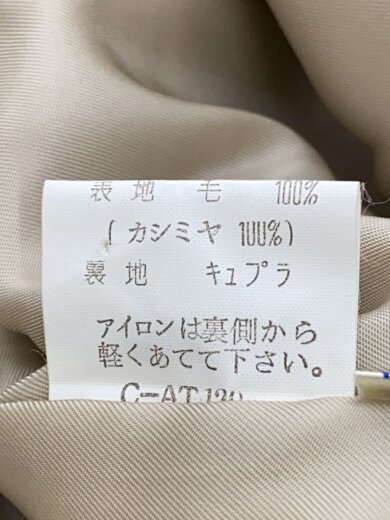 表地 毛 100%
(カシミヤ 100%)
裏地 キュプラ
アイロンは裏側から
軽くあてて下さい。
C-AT120